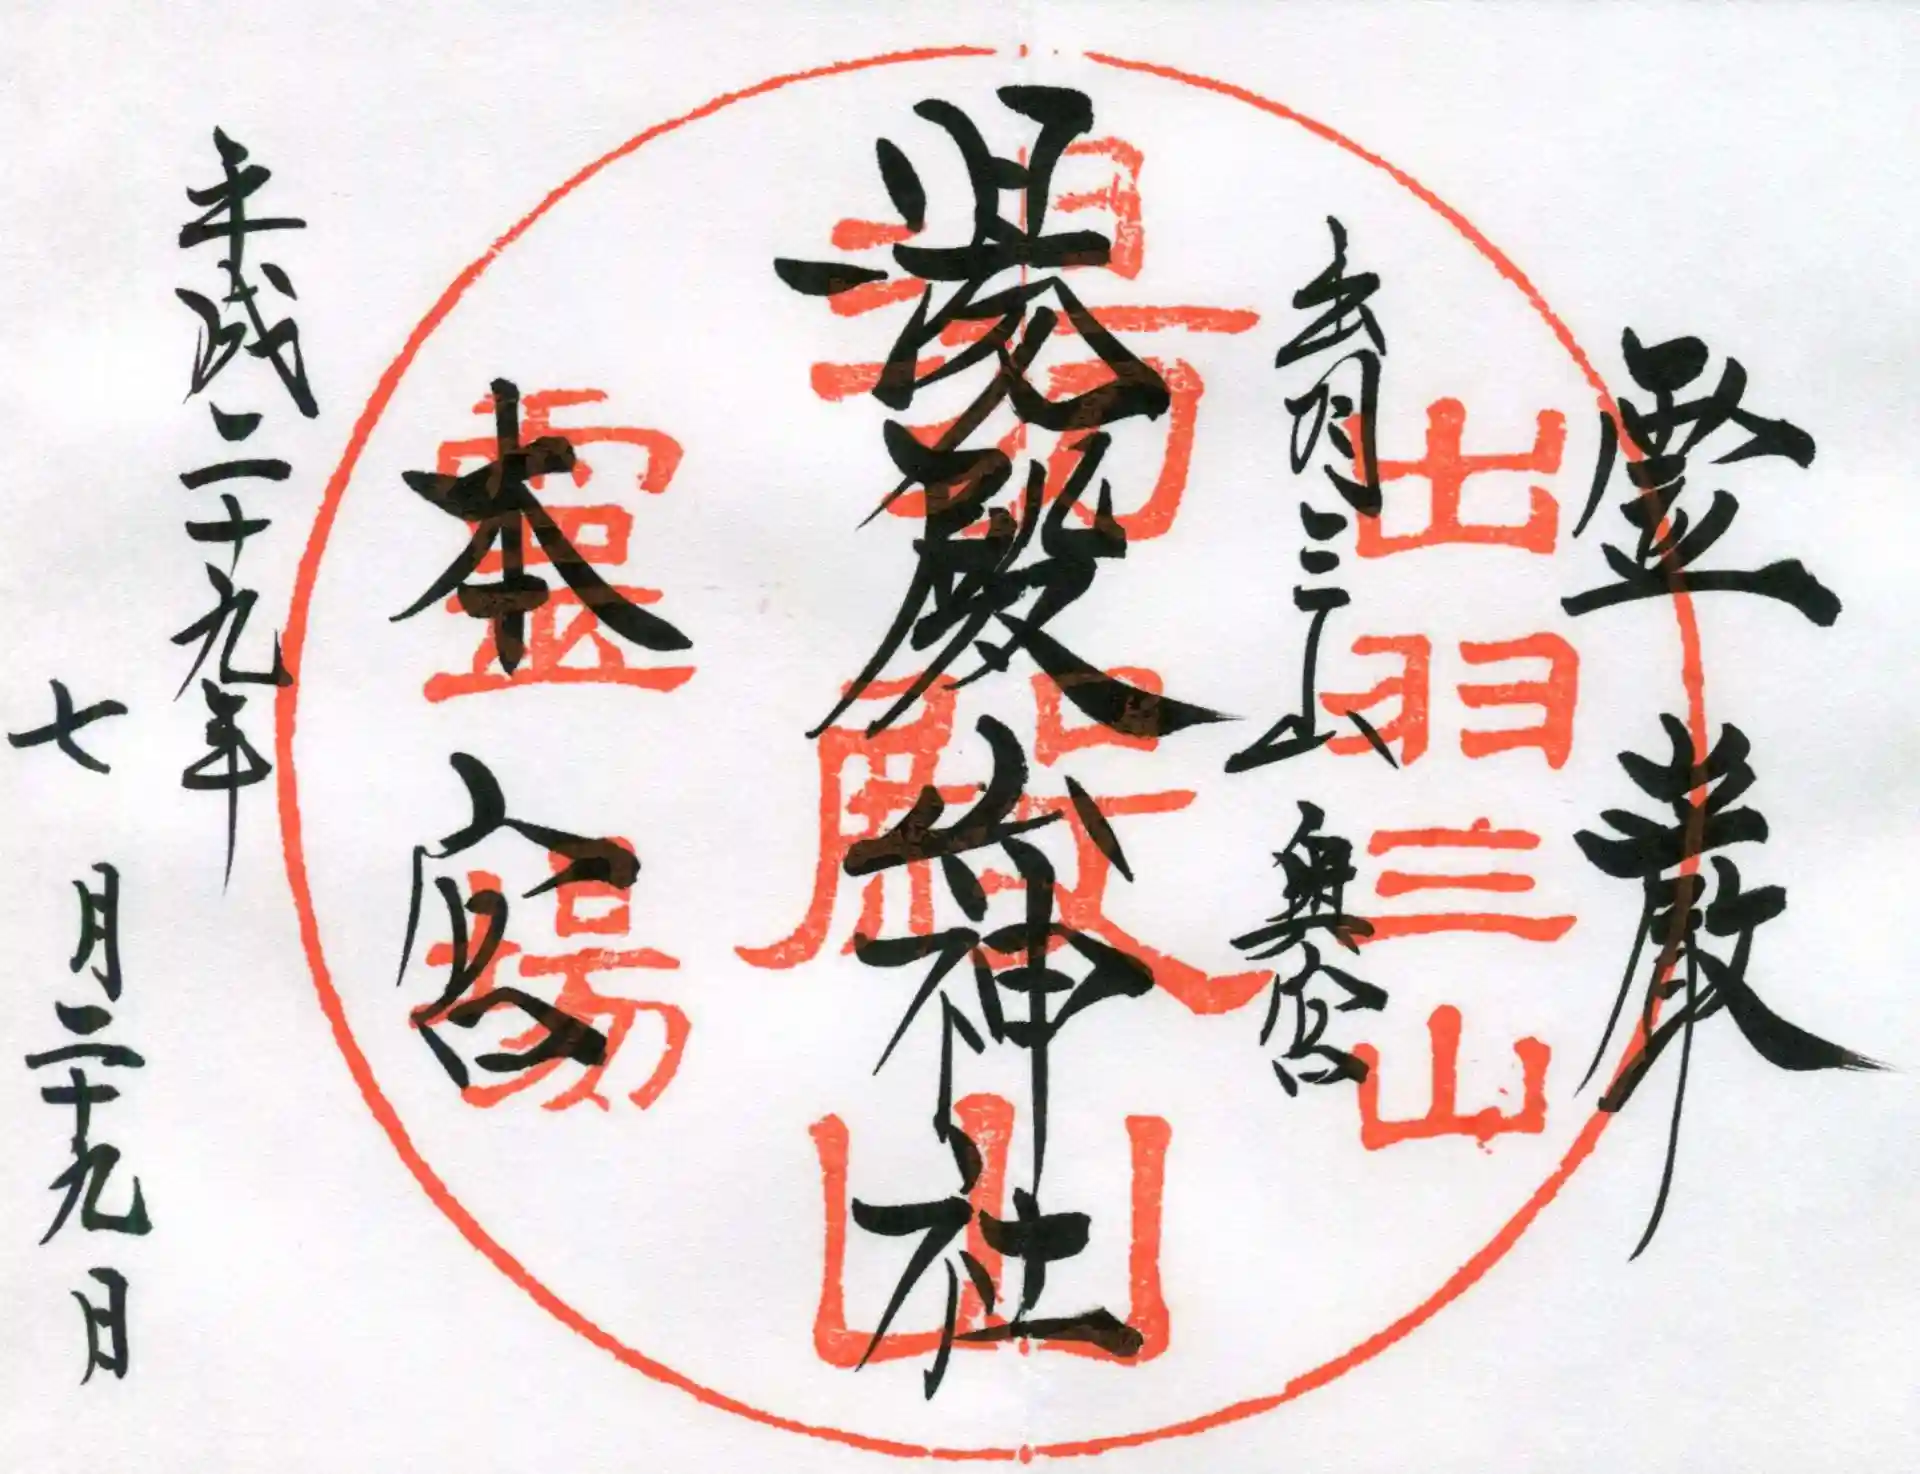 霊巌
出羽三山 奥宮
湯殿山神社
本宮
平成二十九年
七月二十九日
出羽三山
湯殿山
靈場